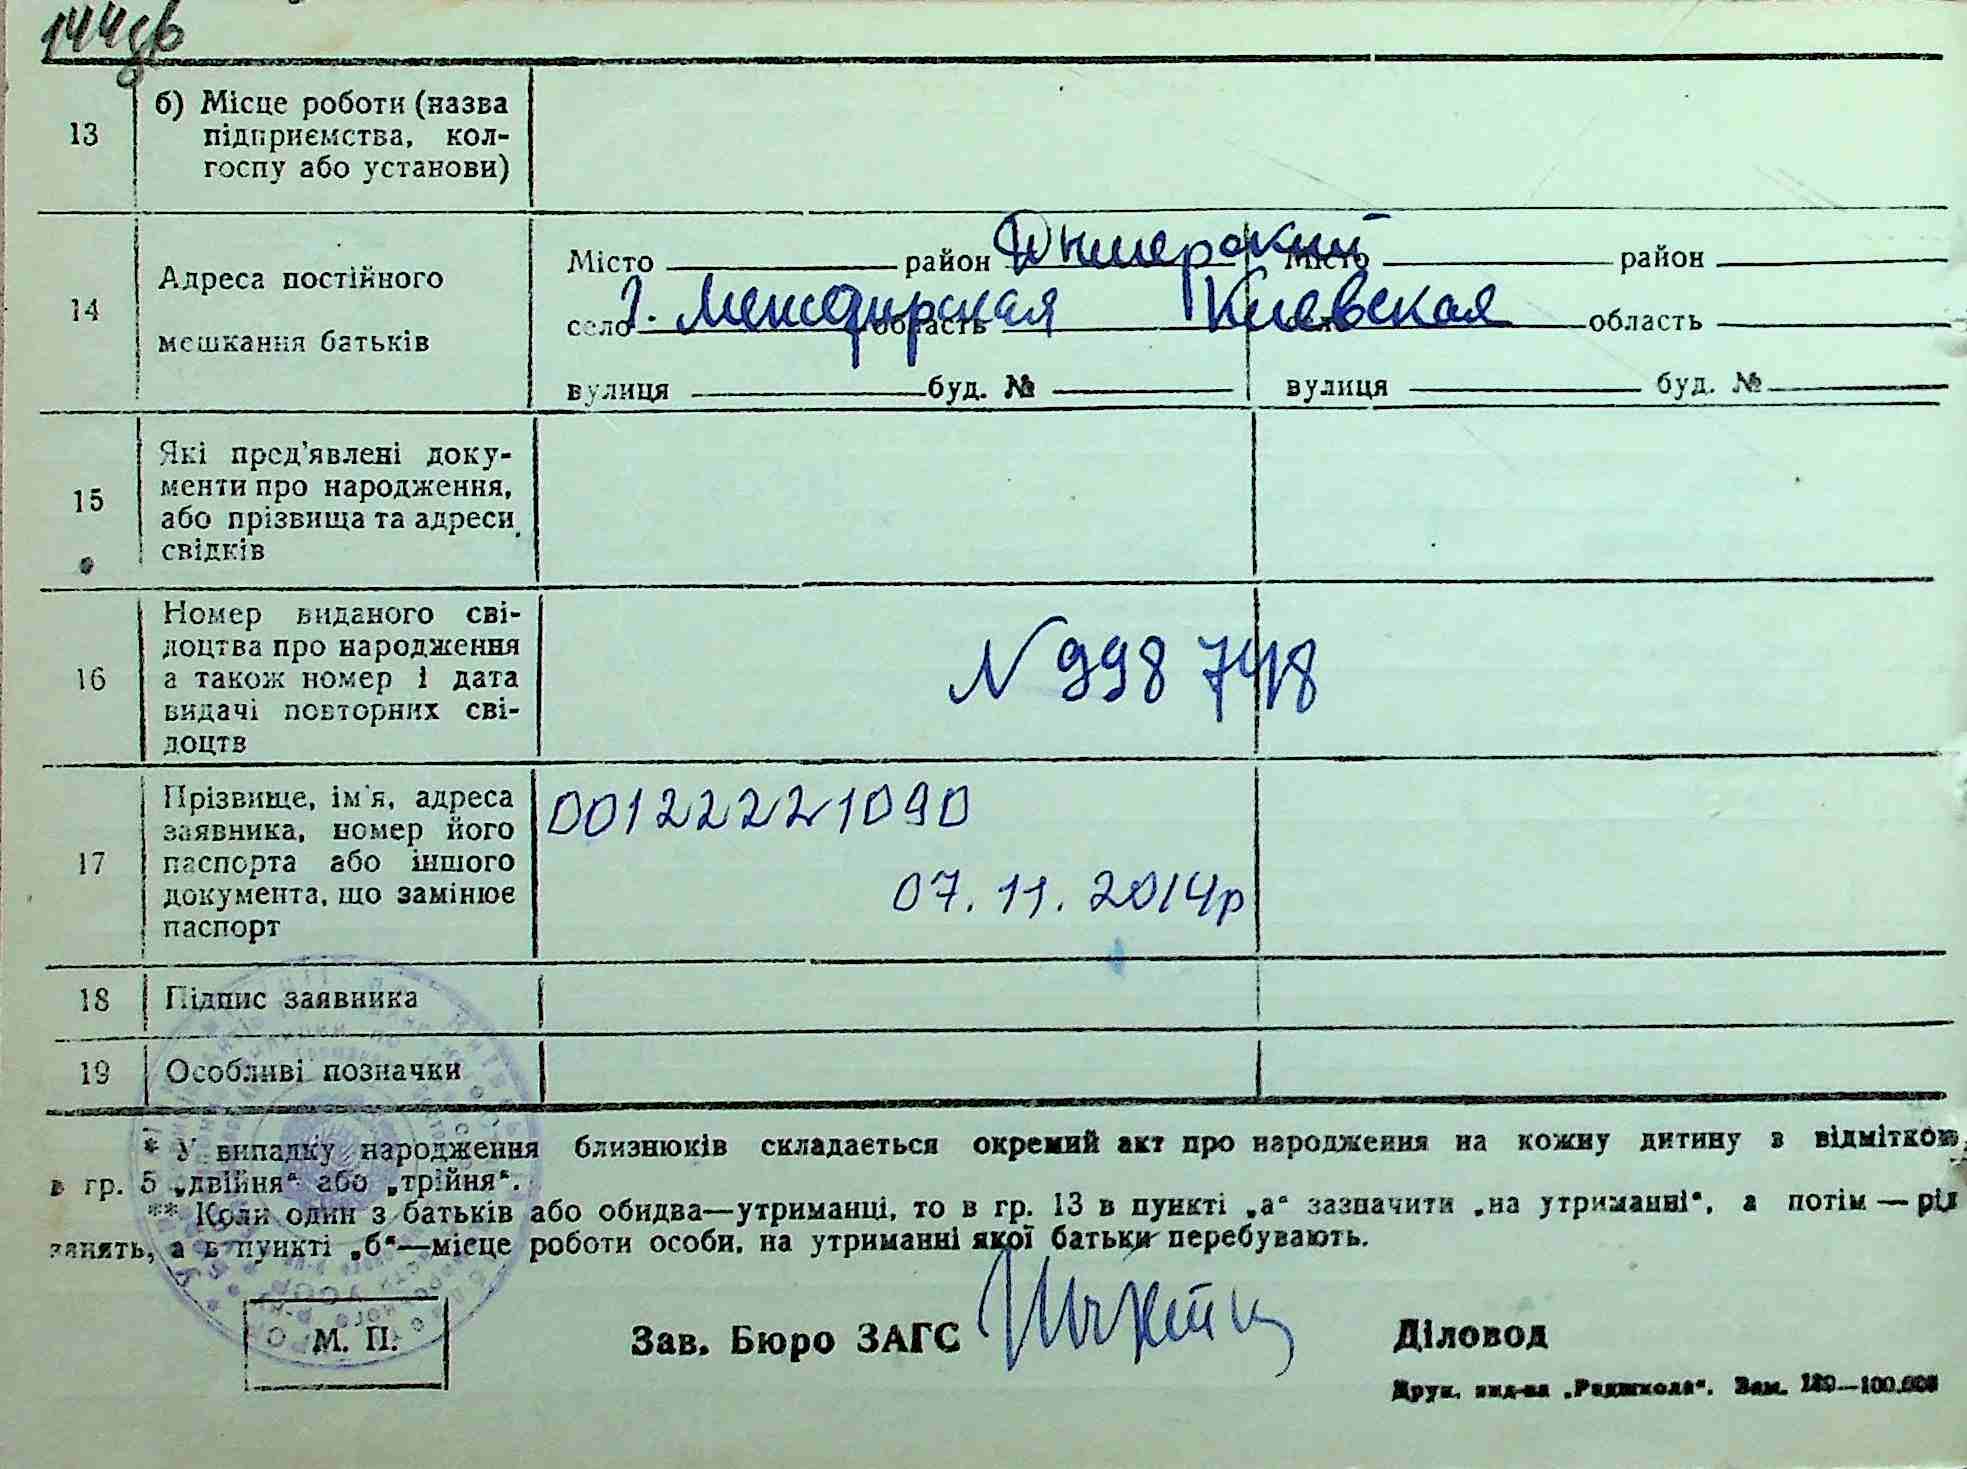 144зв
13 б) Місце роботи (назва
підприємства, кол-
госпу або установи)
14 Адреса постійного
мешкання батьків
Місто район Дымерский Місто район
село область Киевская область
вулиця буд. № вулиця буд. №
15 Які пред'явлені доку-
менти про народження,
або прізвища та адреси
свідків
16 Номер виданого сві-
доцтва про народження
а також номер і дата
видачі повторних сві-
доцтв
N 998748
17 Прізвище, ім'я, адреса
заявника, номер його
паспорта або іншого
документа, що замінює
паспорт
00122221090
07.11.2014р
18 Підпис заявника
19 Особливі позначки
* У випадку народження близнюків складається окремий акт про народження на кожну дитину з відміткою
в гр. 5 „двійня“ або „трійня“.
** Коли один з батьків або обидва—утриманці, то в гр. 13 в пункті „а“ зазначити „на утриманні“, а потім — рід
занять, а в пункті „б“—місце роботи особи, на утриманні якої батьки перебувають.
М. П. Зав. Бюро ЗАГС Діловод
Друк. вид-ва „Радшкола“. Зам. 189—100.000